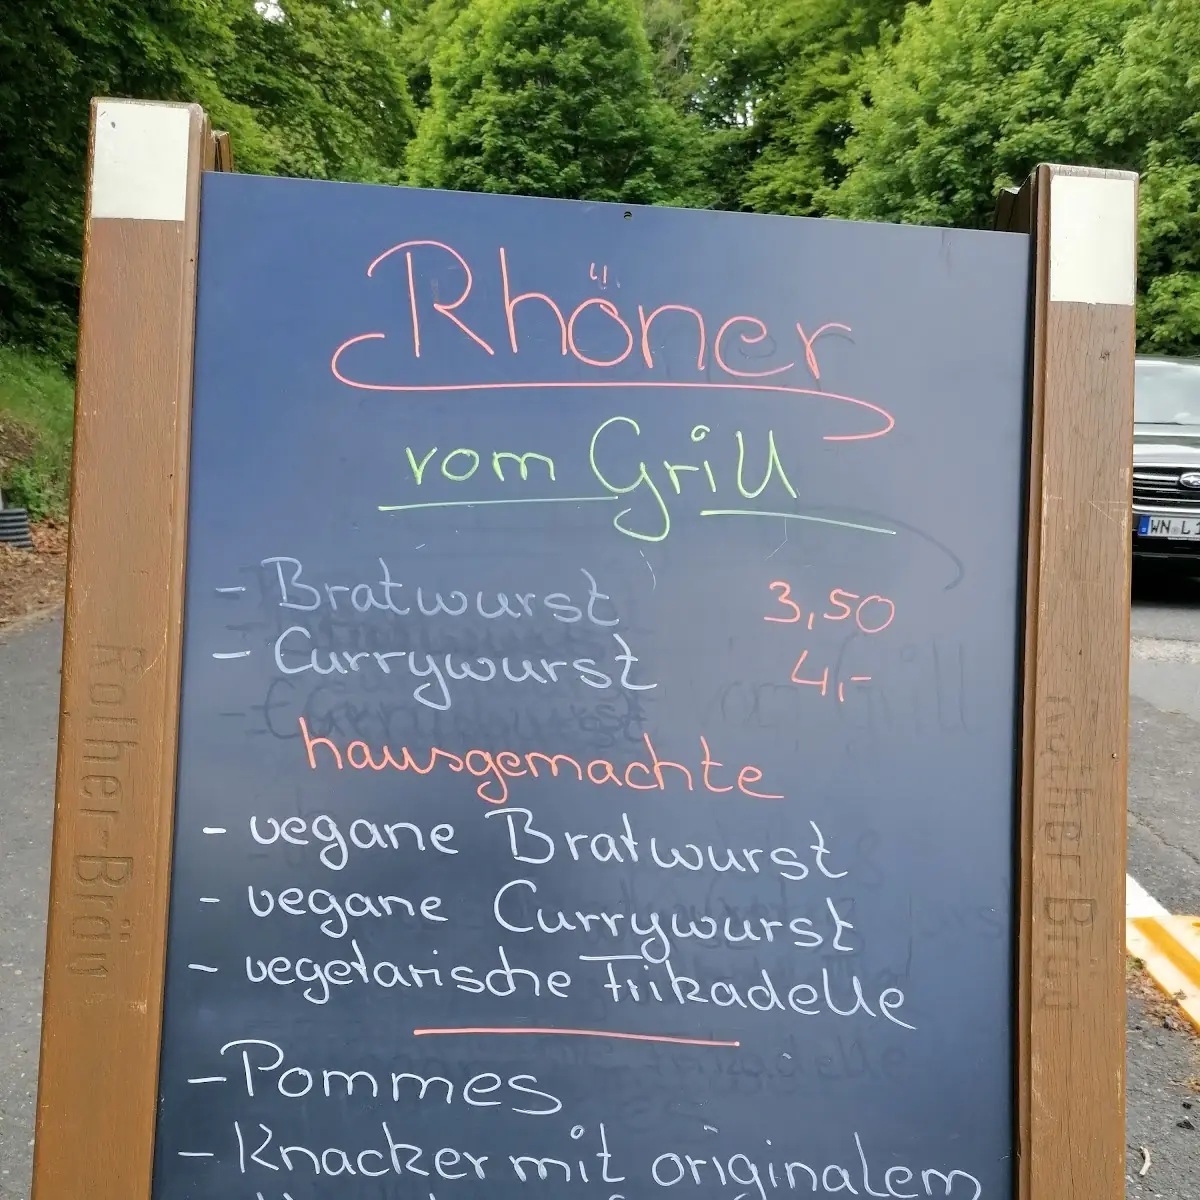 Rhöner
vom Grill
- Bratwurst 3,50
- Currywurst 4,-
hausgemachte
- vegane Bratwurst
- vegane Currywurst
- vegetarische Frikadelle
- Pommes
- Knacker mit originalem
Rother-Bräu
Rother-Bräu
WN L